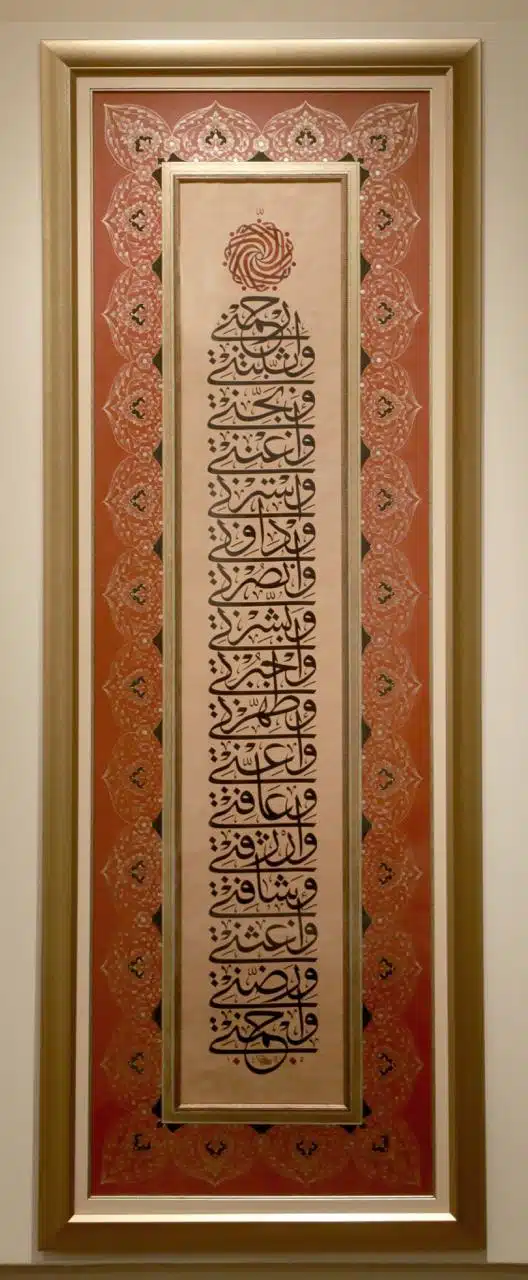 ارحمني
وثبتني
ونجني
واغنني
واسترني
وداوني
وانصرني
وبشرني
واجبرني
وطهرني
واعني
وعافني
وارزقني
وشافني
واغثني
ورضني
وارحمني